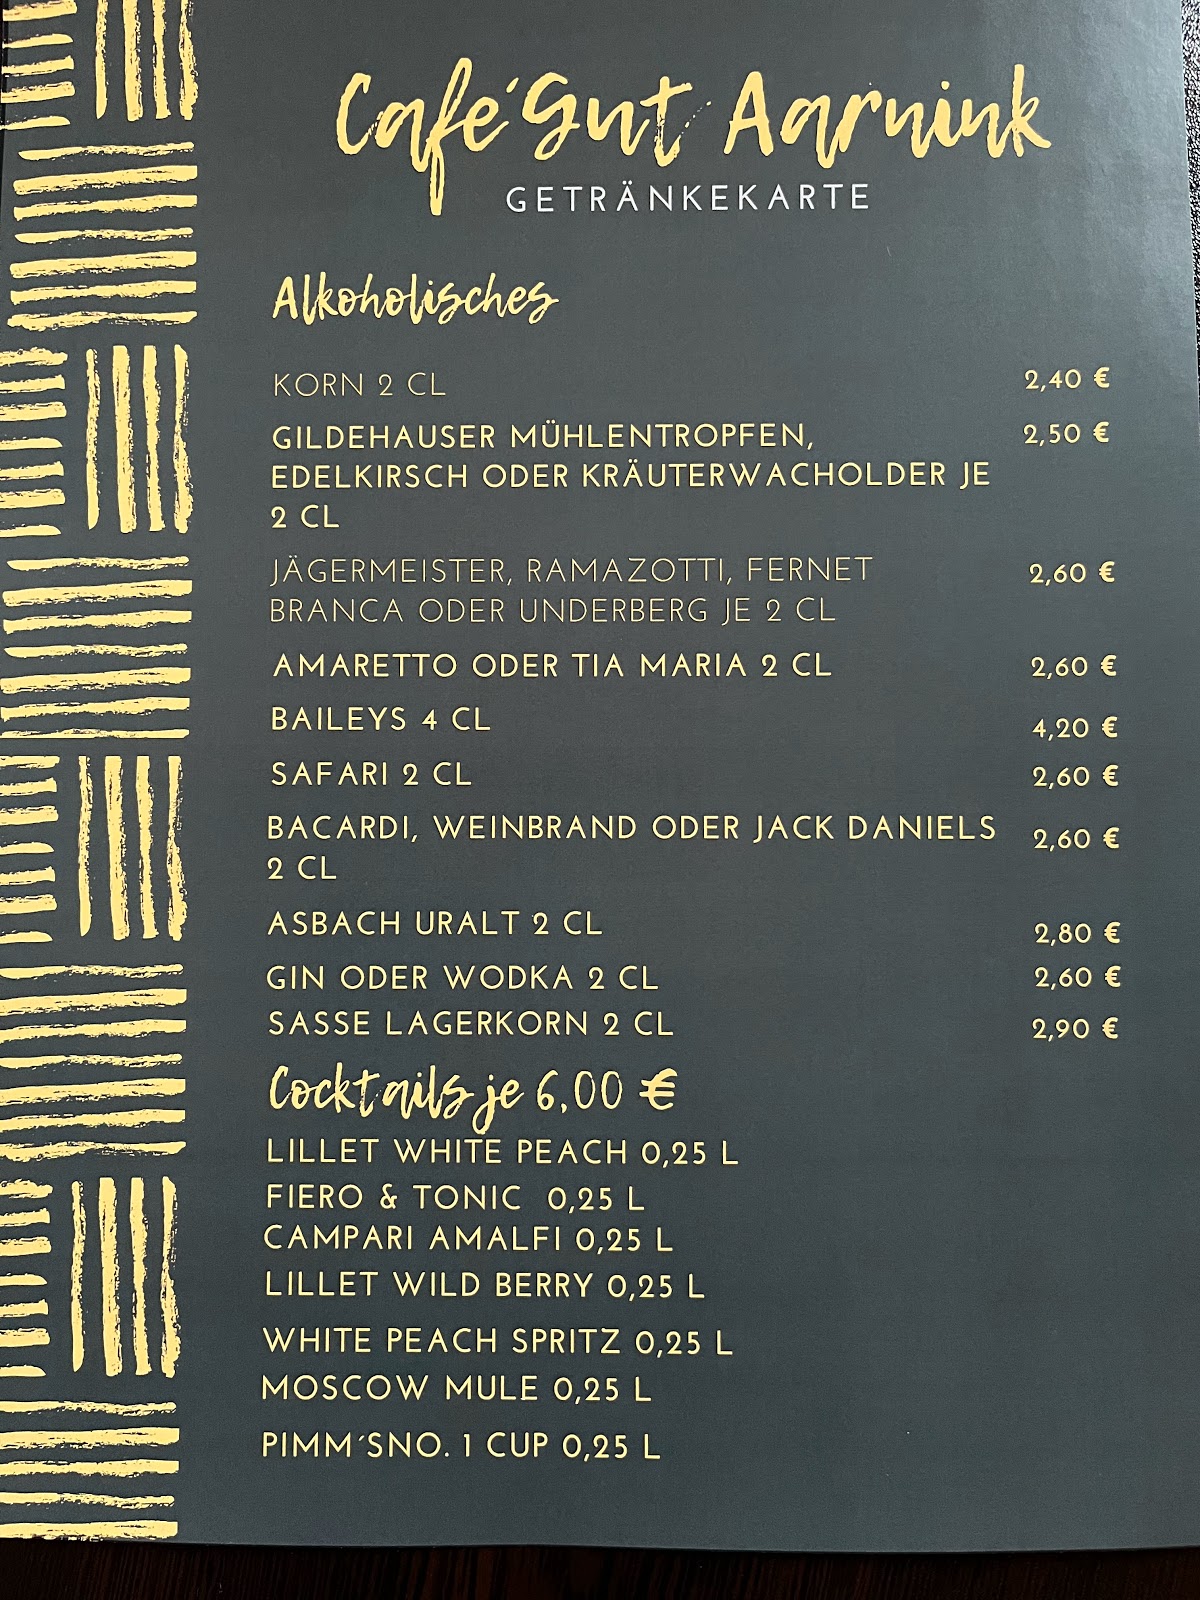 Café Gut Aarnink
GETRÄNKEKARTE
Alkoholisches
KORN 2 CL 2,40 €
GILDEHAUSER MÜHLENTROPFEN, 2,50 €
EDELKIRSCH ODER KRÄUTERWACHOLDER JE
2 CL
JÄGERMEISTER, RAMAZOTTI, FERNET 2,60 €
BRANCA ODER UNDERBERG JE 2 CL
AMARETTO ODER TIA MARIA 2 CL 2,60 €
BAILEYS 4 CL 4,20 €
SAFARI 2 CL 2,60 €
BACARDI, WEINBRAND ODER JACK DANIELS 2,60 €
2 CL
ASBACH URALT 2 CL 2,80 €
GIN ODER WODKA 2 CL 2,60 €
SASSE LAGERKORN 2 CL 2,90 €
Cocktails je 6,00 €
LILLET WHITE PEACH 0,25 L
FIERO & TONIC 0,25 L
CAMPARI AMALFI 0,25 L
LILLET WILD BERRY 0,25 L
WHITE PEACH SPRITZ 0,25 L
MOSCOW MULE 0,25 L
PIMM´SNO. 1 CUP 0,25 L